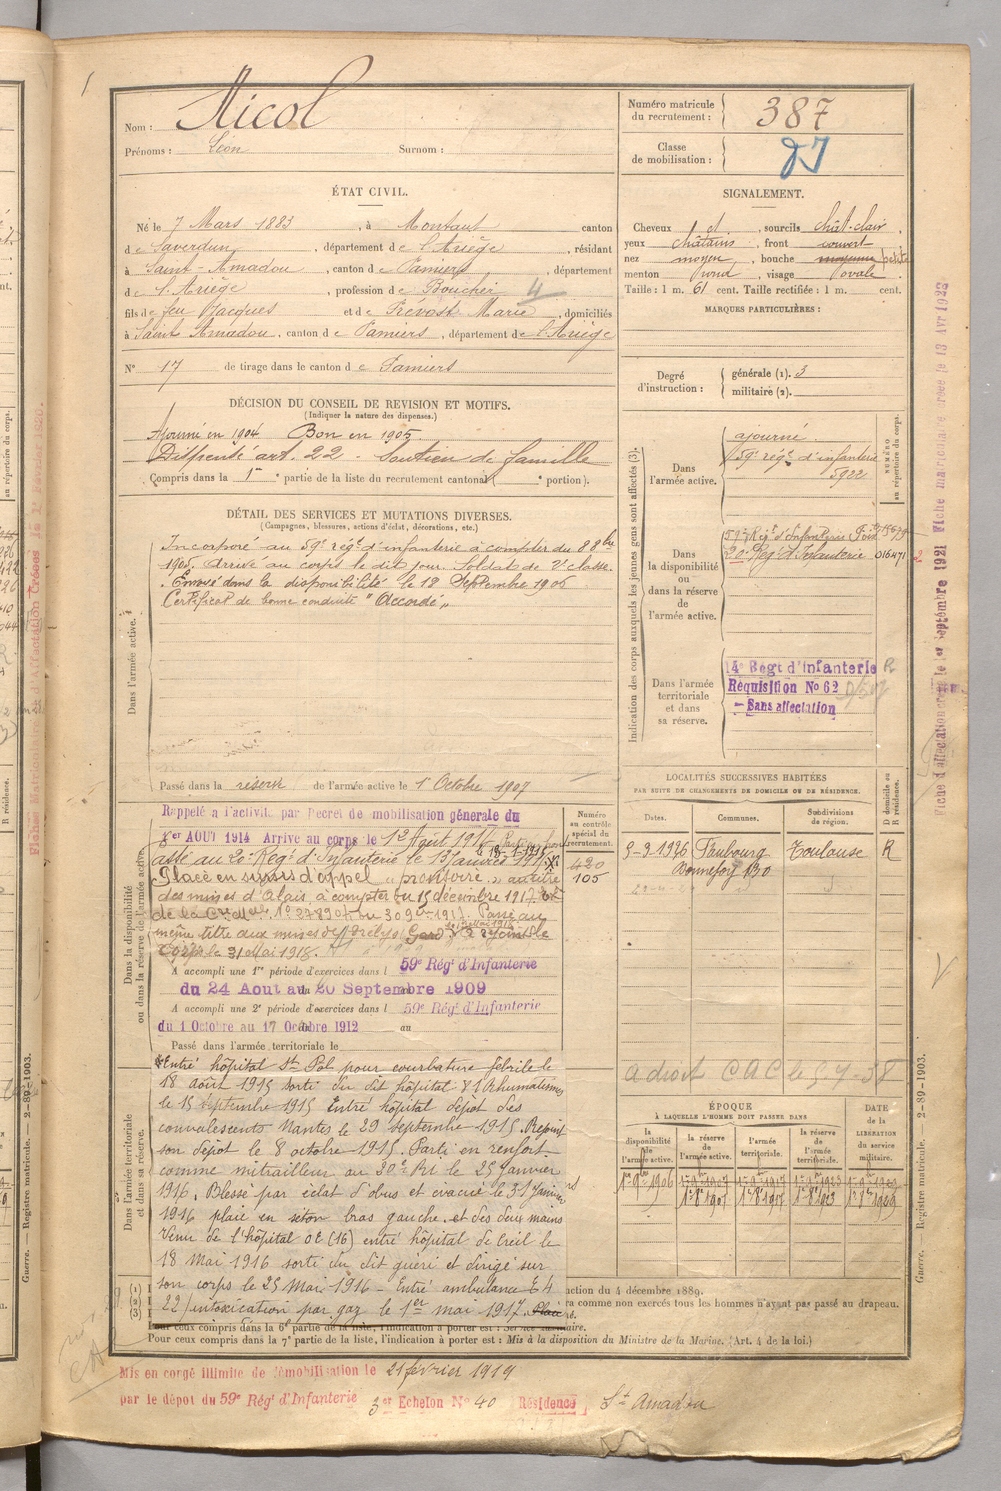 Nom : Nicol
Prénoms : Léon Surnom :
Numéro matricule du recrutement : 387
Classe de mobilisation :
ÉTAT CIVIL.
Né le 7 Mars 1883, à Montaut canton
de Saverdun, département de l'Ariège, résidant
à Saint-Amadou, canton de Pamiers, département
de l'Ariège, profession de Boucher 4
fils de feu Jacques et de Prévost Marie, domiciliés
à Saint Amadou, canton de Pamiers, département de l'Ariège
N° 17 de tirage dans le canton de Pamiers
SIGNALEMENT.
Cheveux et, sourcils chât-clair,
yeux châtains, front couvert
nez moyen, bouche moyenne petite
menton rond, visage ovale
Taille : 1 m. 61 cent. Taille rectifiée : 1 m. cent.
MARQUES PARTICULIÈRES :
Degré d'instruction : générale (1). 3
militaire (2).
DÉCISION DU CONSEIL DE REVISION ET MOTIFS.
(Indiquer la nature des dispenses.)
Ajourné en 1904 Bon en 1905
Dispensé art. 22 - Soutien de famille
Compris dans la 1re partie de la liste du recrutement cantonal ( e portion).
DÉTAIL DES SERVICES ET MUTATIONS DIVERSES.
(Campagnes, blessures, actions d'éclat, décorations, etc.)
Dans l'armée active.
Incorporé au 59e régt d'infanterie à compter du 8 8bre
1905. Arrivé au corps le dit jour. Soldat de 2e classe.
Envoyé dans la disponibilité le 18 Septembre 1906
Certificat de bonne conduite "Accordé"
Passé dans la réserve de l'armée active le 1er Octobre 1907
Indication des corps auxquels les jeunes gens sont affectés (3).
NUMÉRO au répertoire du corps.
Dans l'armée active.
ajourné.
59e régt d'infanterie
5922
Dans la disponibilité ou dans la réserve de l'armée active.
59e Régt d'Infanterie Foix
20e Regt d'Infanterie 016471
Dans l'armée territoriale et dans sa réserve.
14e Régt d'infanterie R
Réquisition No 62
- Sans affectation
LOCALITÉS SUCCESSIVES HABITÉES
PAR SUITE DE CHANGEMENTS DE DOMICILE OU DE RÉSIDENCE.
Dates. Communes. Subdivisions de région. D domicile ou R résidence.
5-2-1926 Faubourg Bonnefoy 130 Toulouse R
a droit C A C le 5-7-38
Dans la disponibilité ou dans la réserve de l'armée active.
Numéro au contrôle spécial du recrutement.
420
105
Rappelé a l'activité par Décret de mobilisation générale du
1er AOUT 1914 Arrivé au corps le 12 Août 1914
passé au 20e Régt d'Infanterie le 13 janvier 1916
Placé en sursis d'appel "provisoire" au titre
des mines d'Alais, à compter du 15 décembre 1917
Passé au
même titre aux mines de
Corps le 31 Mai 1918.
A accompli une 1re période d'exercices dans l 59e Régt d'Infanterie
du 24 Aout au 20 Septembre 1909
A accompli une 2e période d'exercices dans l 59e Régt d'Infanterie
du 1 Octobre au 17 Octobre 1912 au
Passé dans l'armée territoriale le
Dans l'armée territoriale et dans sa réserve.
Entré hôpital St Pol pour courbature fébrile le
18 août 1915 sorti du dit hôpital Rhumatismes
le 15 septembre 1915 Entré hôpital dépot des
convalescents Nantes le 29 septembre 1915. Rejoint
son dépot le 8 octobre 1915. Parti en renfort
comme mitrailleur au 20e RI le 25 Janvier
1916. Blessé par éclat d'obus et évacué le 31 Janvier
1916 plaie en séton bras gauche et des deux mains
Venu de l'hôpital OE (16) entré hôpital de Creil le
18 Mai 1916 sorti du dit guéri et dirigé sur
son corps le 25 Mai 1916 - Entré ambulance E 4
22/intoxication par gaz le 1er mai 1917.
ÉPOQUE
À LAQUELLE L'HOMME DOIT PASSER DANS
la disponibilité de l'armée active. la réserve de l'armée active. l'armée territoriale. la réserve de l'armée territoriale. DATE de la LIBÉRATION du service militaire.
(1)
(2)
(3)
ction du 4 décembre 1889.
ra comme non exercés tous les hommes n'ayant pas passé au drapeau.
Pour ceux compris dans la 6e partie de la liste, l'indication à porter est : Service auxiliaire.
Pour ceux compris dans la 7e partie de la liste, l'indication à porter est : Mis à la disposition du Ministre de la Marine. (Art. 4 de la loi.)
Mis en congé illimité de démobilisation le 21 février 1919
par le dépot du 59e Régt d'Infanterie 3er Echelon No 40 Résidence St Amadou
Guerre. — Registre matricule. — 2-89-1903.
Fiche d'affectation créée le 1er Septembre 1921 Fiche matriculaire créée le 13 Avr 1923